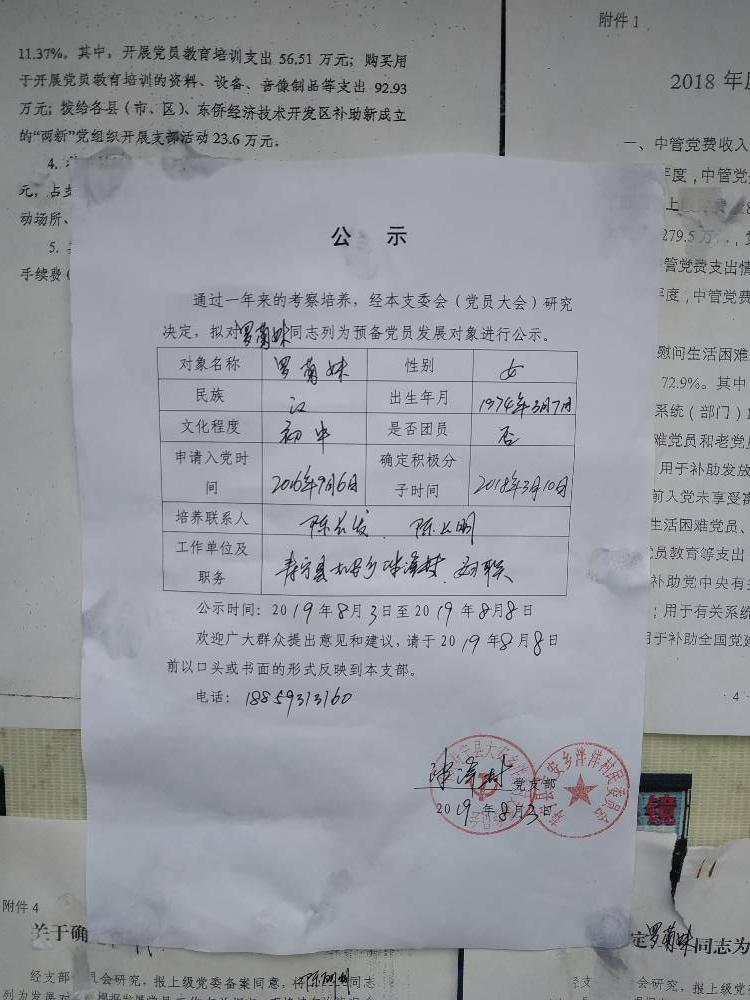 11.37%。其中，开展党员教育培训支出 56.51 万元；购买用
于开展党员教育培训的资料、设备、音像制品等支出 92.93
万元；拨给各县（市、区）、东侨经济技术开发区补助新成立
的“两新”党组织开展支部活动 23.6 万元。
4.
元，占
动场所、
5.
手续费
附件 1
2018 年
一、中管党费收入
年度，中管党
279.5 万
管党费支出情
年度，中管党费
慰问生活困难
72.9%。其中
系统（部门）
难党员和老党
用于补助发放
前入党未享受
生活困难党员、
党员教育等支出
补助党中央有
；用于有关系统
用于补助全国党建
· 4 ·
公 示
通过一年来的考察培养，经本支委会（党员大会）研究
决定，拟对罗菊妹同志列为预备党员发展对象进行公示。
对象名称 罗菊妹 性别 女
民族 汉 出生年月 1974年3月7日
文化程度 初中 是否团员 否
申请入党时间 2016年9月6日 确定积极分子时间 2018年3月10日
培养联系人 陈长发、陈上明
工作单位及职务 寿宁县大安乡洋村、妇联
公示时间：2019 年 8 月 3 日至 2019 年 8 月 8 日
欢迎广大群众提出意见和建议，请于 2019 年 8 月 8 日
前以口头或书面的形式反映到本支部。
电话：18859313160
洋村 党支部
2019 年 8 月 3 日
寿宁县大安乡泮洋村民委员会
附件 4
关于确
定罗菊妹同志为
经支部 员会研究，报上级党委备案同意，将 同志
列为发展对
经支 会研究，报上级党